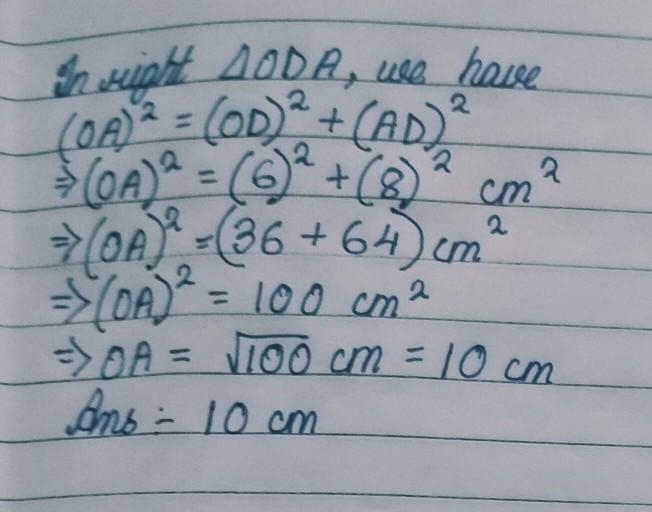 In right ΔODA, we have
(OA)² = (OD)² + (AD)²
⇒ (OA)² = (6)² + (8)² cm²
⇒ (OA)² = (36 + 64) cm²
⇒ (OA)² = 100 cm²
⇒ OA = √100 cm = 10 cm
Ans :- 10 cm